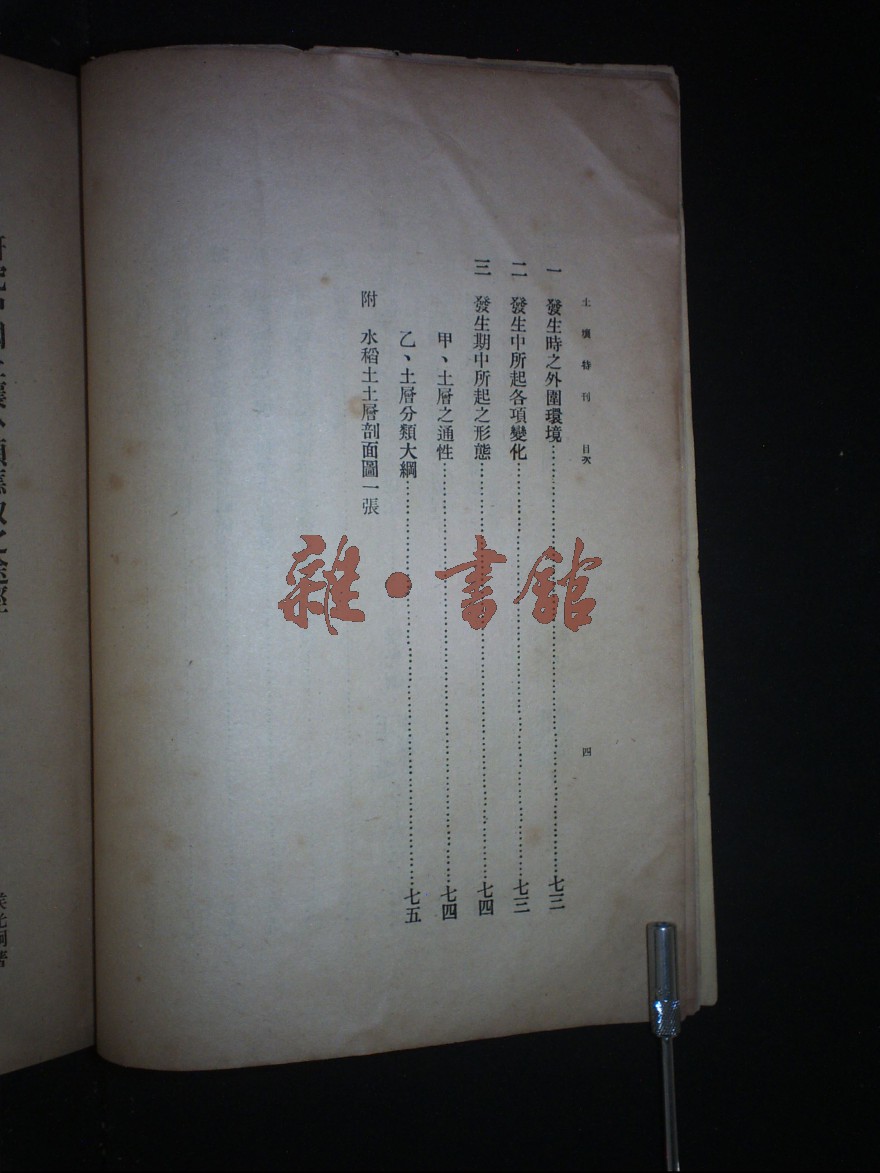 土壤特刊 目次 四
一 發生時之外圍環境……七三
二 發生中所起各項變化……七三
三 發生期中所起之形態……七四
甲、土層之通性……七四
乙、土層分類大綱……七五
附 水稻土土層剖面圖一張
雜·書館